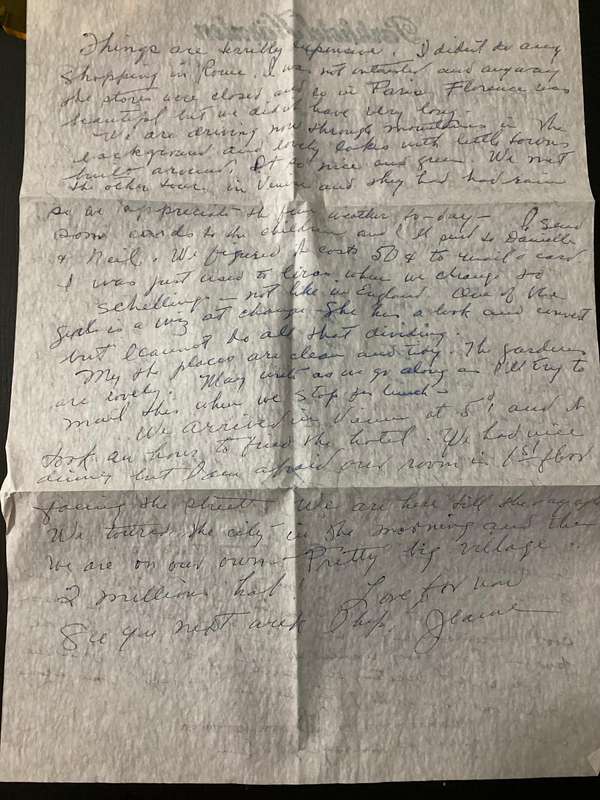 Things are terribly expensive. I didn't do any
shopping in Rome. I was not interested and anyway
the stores were closed and so in Paris. Florence was
beautiful but we didn't have very long.
We are driving now through mountains in the
background and lovely lakes with little towns
built around. It so nice and green. We met
the other tour in Venice and they had had rain
so we appreciate the fine weather to-day - I send
some cards to the children and I'll send to Danielle
& Neil. We figured it costs 50¢ to mail a card
I was just used to liras when we change to
schillings - not like in England. One of the
girls is a wiz at change - She has a book and convert
but I cannot do all that dividing.
My the places are clean and tidy. The gardens
are lovely. May write as we go along as I'll try to
mail this when we stop for lunch -
We arrived in Vienna at 5 and it
took an hour to find the hotel. We had nice
dinner but I am afraid our room in 1st floor
facing the street. We are here till
We toured the city in the morning and then
we are on our own. Pretty big village
2 millions hab! Love for now
See you next week Jeanne